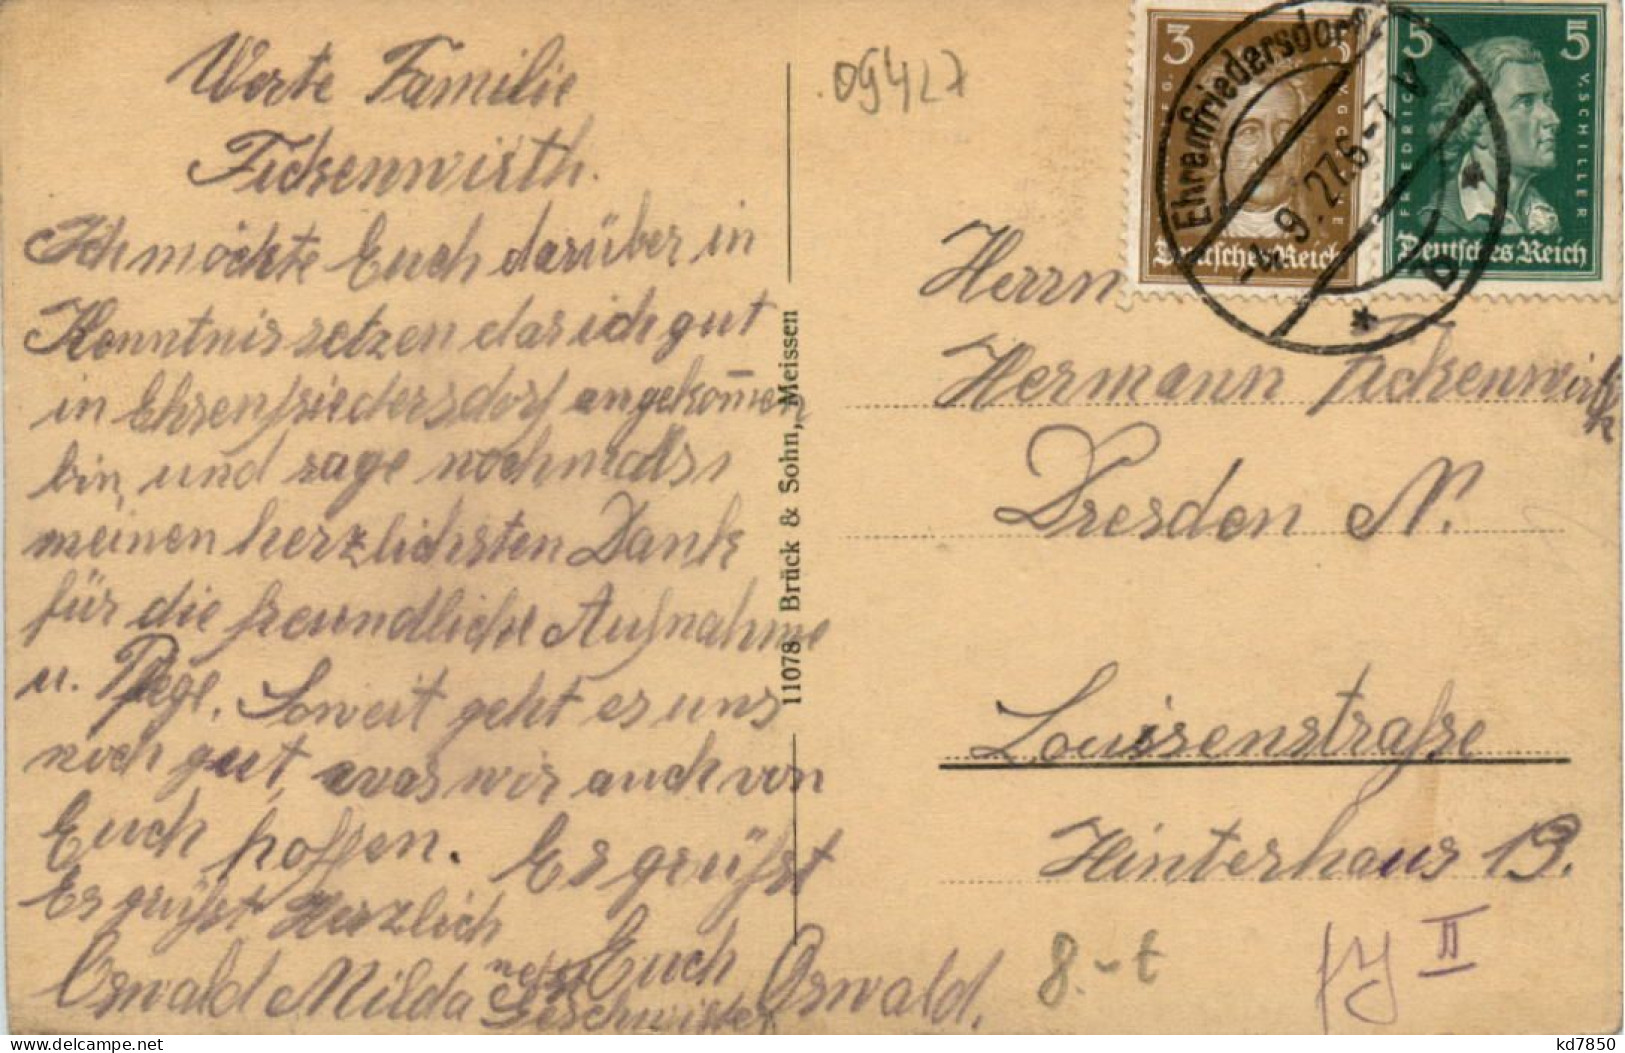 Werte Familie
Fickenwirth.
Ich möchte Euch darüber in
Kenntnis setzen das ich gut
in Ehrenfriedersdorf angekom̅en
bin, und sage nochmals
meinen herzlichsten Dank
für die freundliche Aufnahme
u. Pflege. Soweit geht es uns
noch gut, was wir auch von
Euch hoffen. Es grüßt
Es grüßt Herzlich
Euch Oswald.
Oswald Milda nebst
Geschwister
11078 Brück & Sohn, Meissen
09427
3
Deutsches Reich
5 5
FRIEDRICH V. SCHILLER
Deutsches Reich
Ehrenfriedersdorf
-4.9.27.6-7V
* b *
Herrn
Hermann Fickenwirth
Dresden N.
Louisenstraße
Hinterhaus 13.
8.-t
II
kd7850